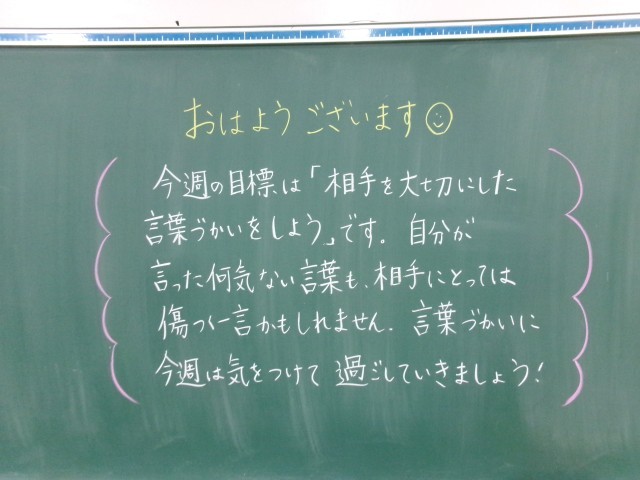 おはようございます
今週の目標は「相手を大切にした
言葉づかいをしよう」です。自分が
言った何気ない言葉も、相手にとっては
傷つく一言かもしれません。言葉づかいに
今週は気をつけて過ごしていきましょう!